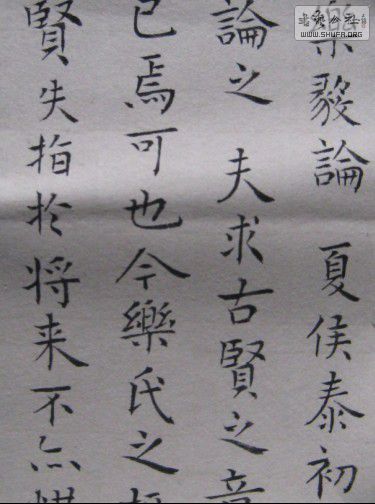 樂毅論 夏侯泰初
論之 夫求古賢之
已焉可也今樂氏之
賢失指於将来不亦
WWW.SHUFA.ORG